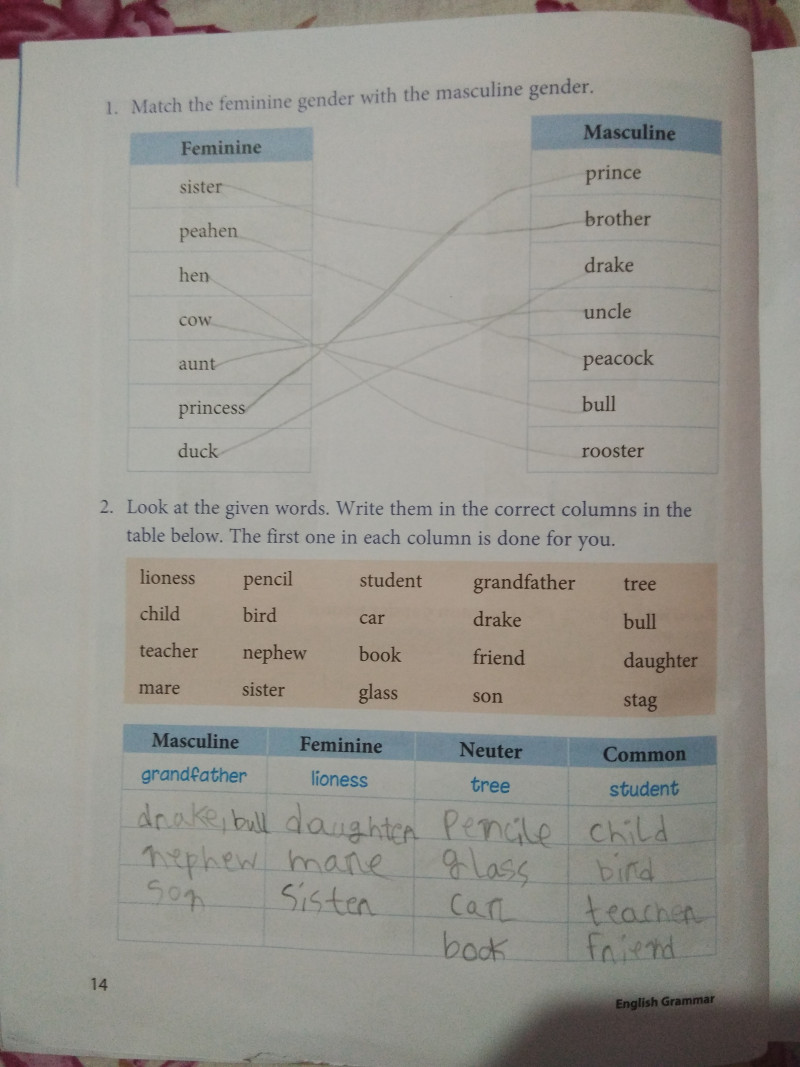 1. Match the feminine gender with the masculine gender.
Feminine Masculine
sister prince
peahen brother
hen drake
cow uncle
aunt peacock
princess bull
duck rooster
2. Look at the given words. Write them in the correct columns in the
table below. The first one in each column is done for you.
lioness pencil student grandfather tree
child bird car drake bull
teacher nephew book friend daughter
mare sister glass son stag
Masculine Feminine Neuter Common
grandfather lioness tree student
drake, bull daughter Pencile child
nephew mare glass bird
son Sister Car teacher
book friend
14
English Grammar